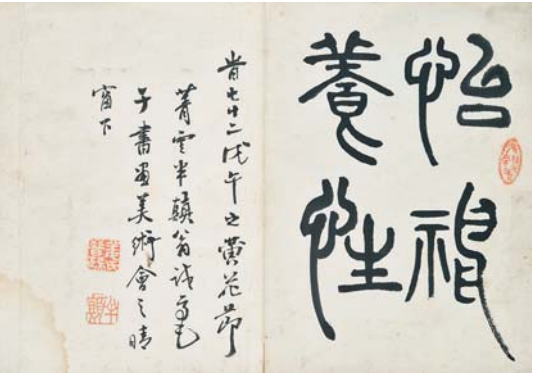 怡神
養性
旹七十二戊午之黄花節
菁雲半顛翁
于書画美術會之晴
窗下